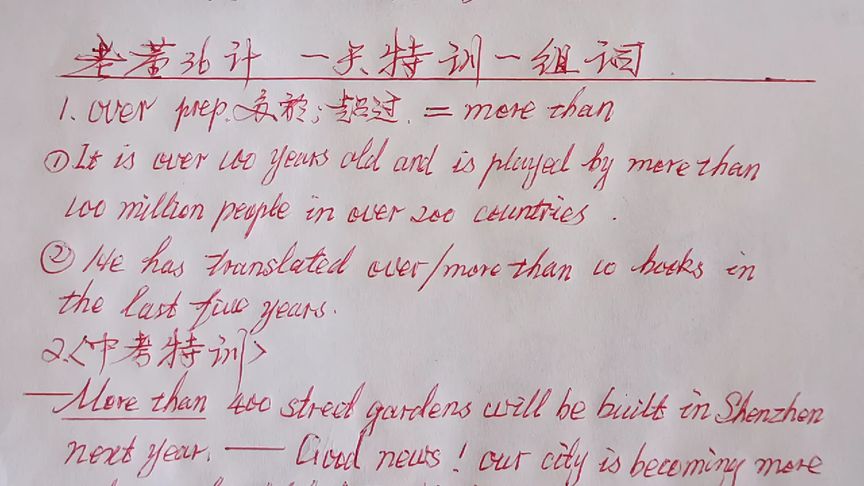 考黄36计 一天特训一组词
1. over prep. 多于; 超过. = more than
①It is over 100 years old and is played by more than
100 million people in over 200 countries.
②He has translated over/more than 10 books in
the last five years.
2.<中考特训>
—More than 400 street gardens will be built in Shenzhen
next year. — Good news! our city is becoming more